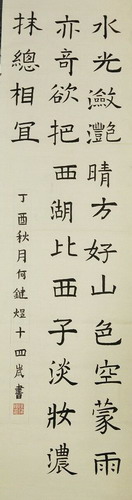 水光瀲灩晴方好山色空蒙雨
亦奇欲把西湖比西子淡妝濃
抹總相宜
丁酉秋月何鍵煜十四歲書